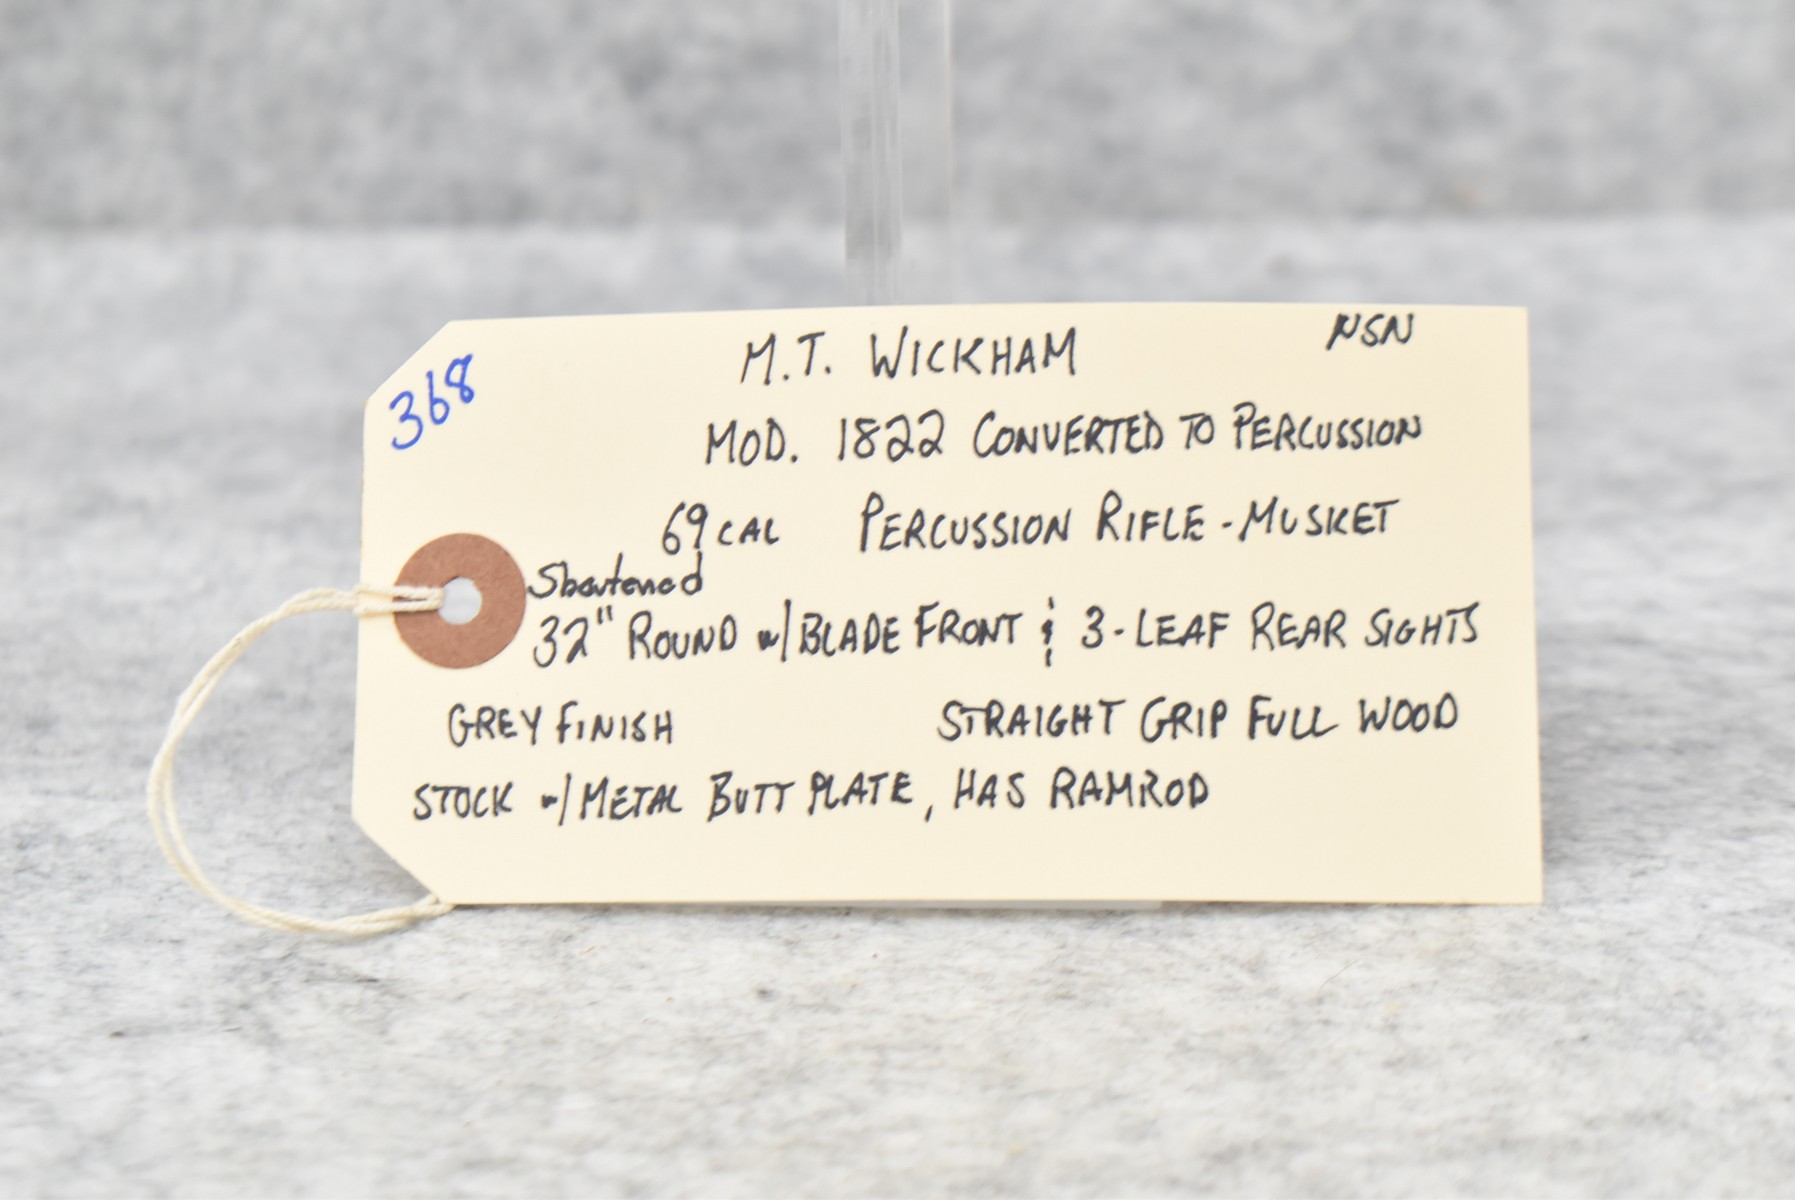 368
M.T. WICKHAM
NSN
MOD. 1822 CONVERTED TO PERCUSSION
69 CAL PERCUSSION RIFLE-MUSKET
Shortened
32" ROUND w/ BLADE FRONT & 3-LEAF REAR SIGHTS
GREY FINISH STRAIGHT GRIP FULL WOOD
STOCK w/ METAL BUTT PLATE, HAS RAMROD